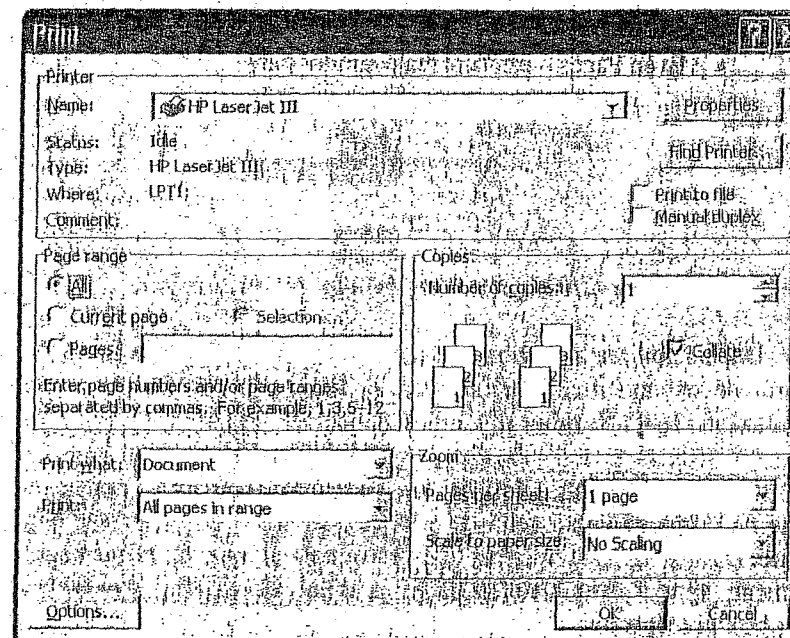 Print
Printer
Name: HP LaserJet III
Properties
Status: Idle
Find Printer...
Type: HP LaserJet III
Where: LPT1:
Print to file
Comment:
Manual duplex
Page range
All
Current page Selection
Pages:
Enter page numbers and/or page ranges
separated by commas. For example, 1,3,5-12
Copies
Number of copies: 1
1 2 3 1 2 3
Collate
Print what: Document
Print: All pages in range
Zoom
Pages per sheet: 1 page
Scale to paper size: No Scaling
Options... OK Cancel